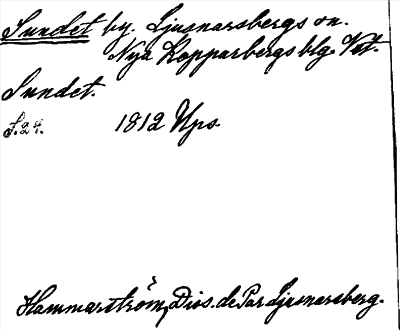 Sundet by. Ljusnarsbergs sn.
Nya Kopparbergs blg. Vst.
Sundet.
S. 24. 1812 Ups.
Hammarström, Diss. de Par. Ljusnarsberg.